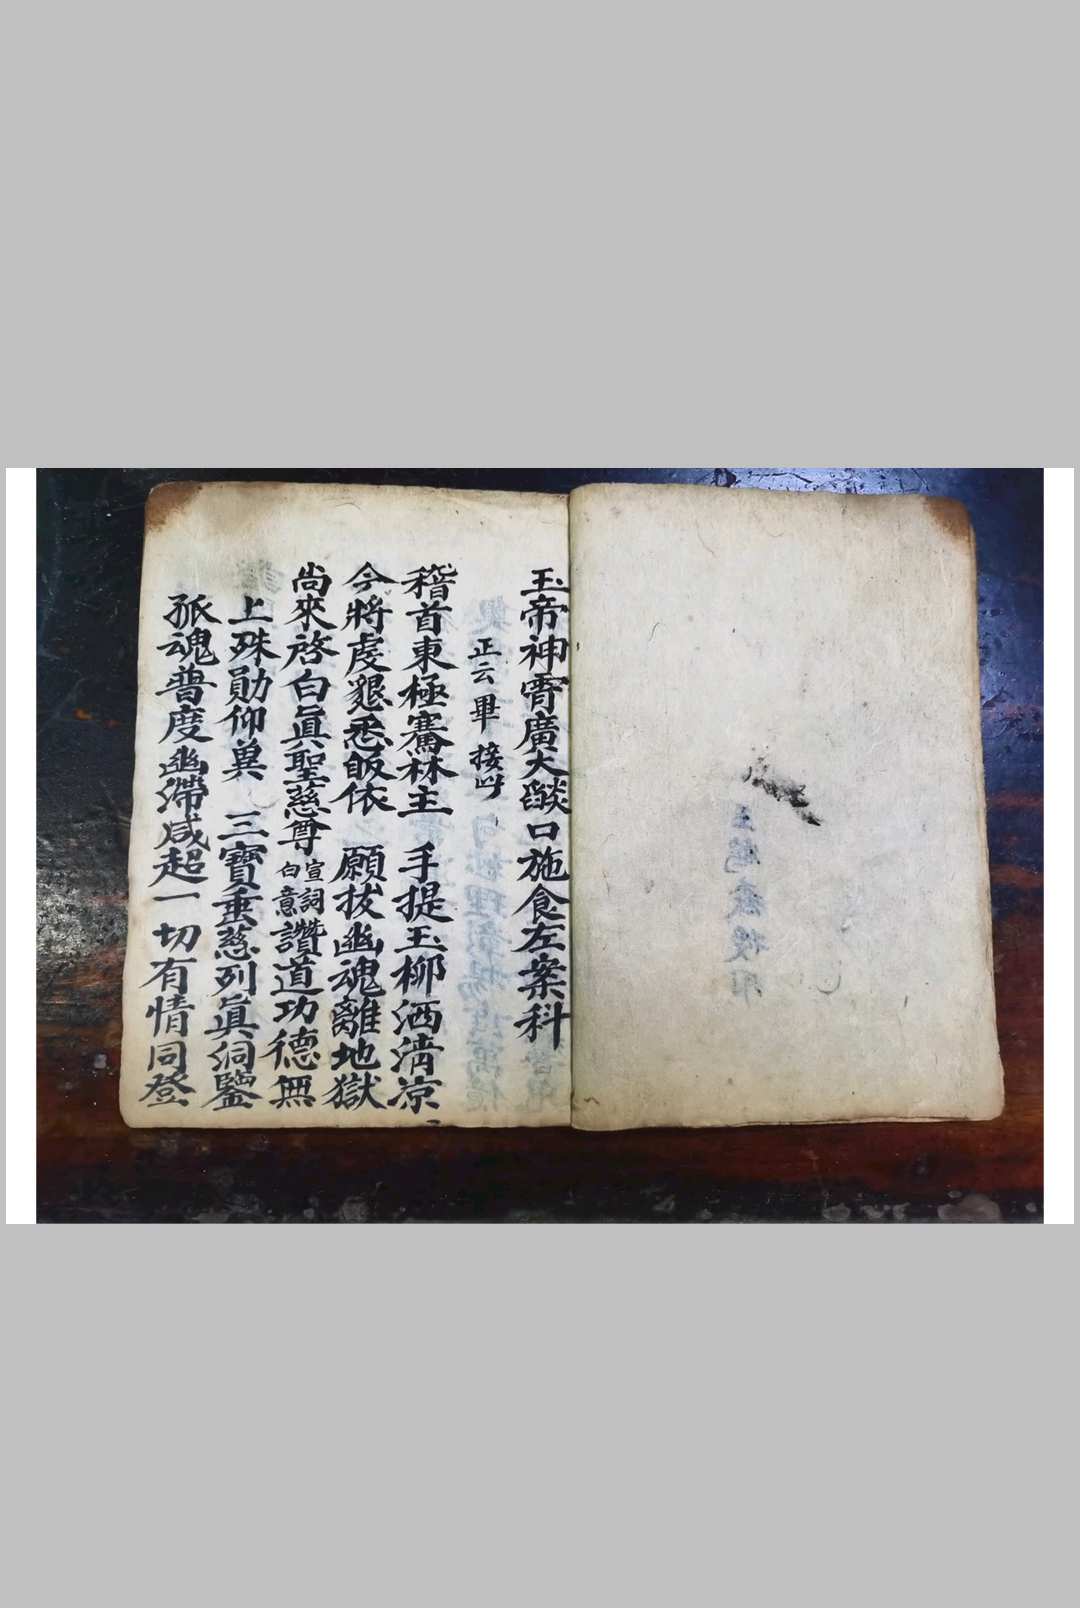 玉帝神霄廣大燄口施食左案科
正云畢 接吟
稽首東極騫林主 手提玉柳洒清凉
今將虔懇悉皈依 願拔幽魂離地獄
尚來啓白眞聖慈尊 宣詞白意 讚道功德無
上殊勛仰兾 三寶垂慈列眞洞鑒
孤魂普度幽滯咸超一切有情同登